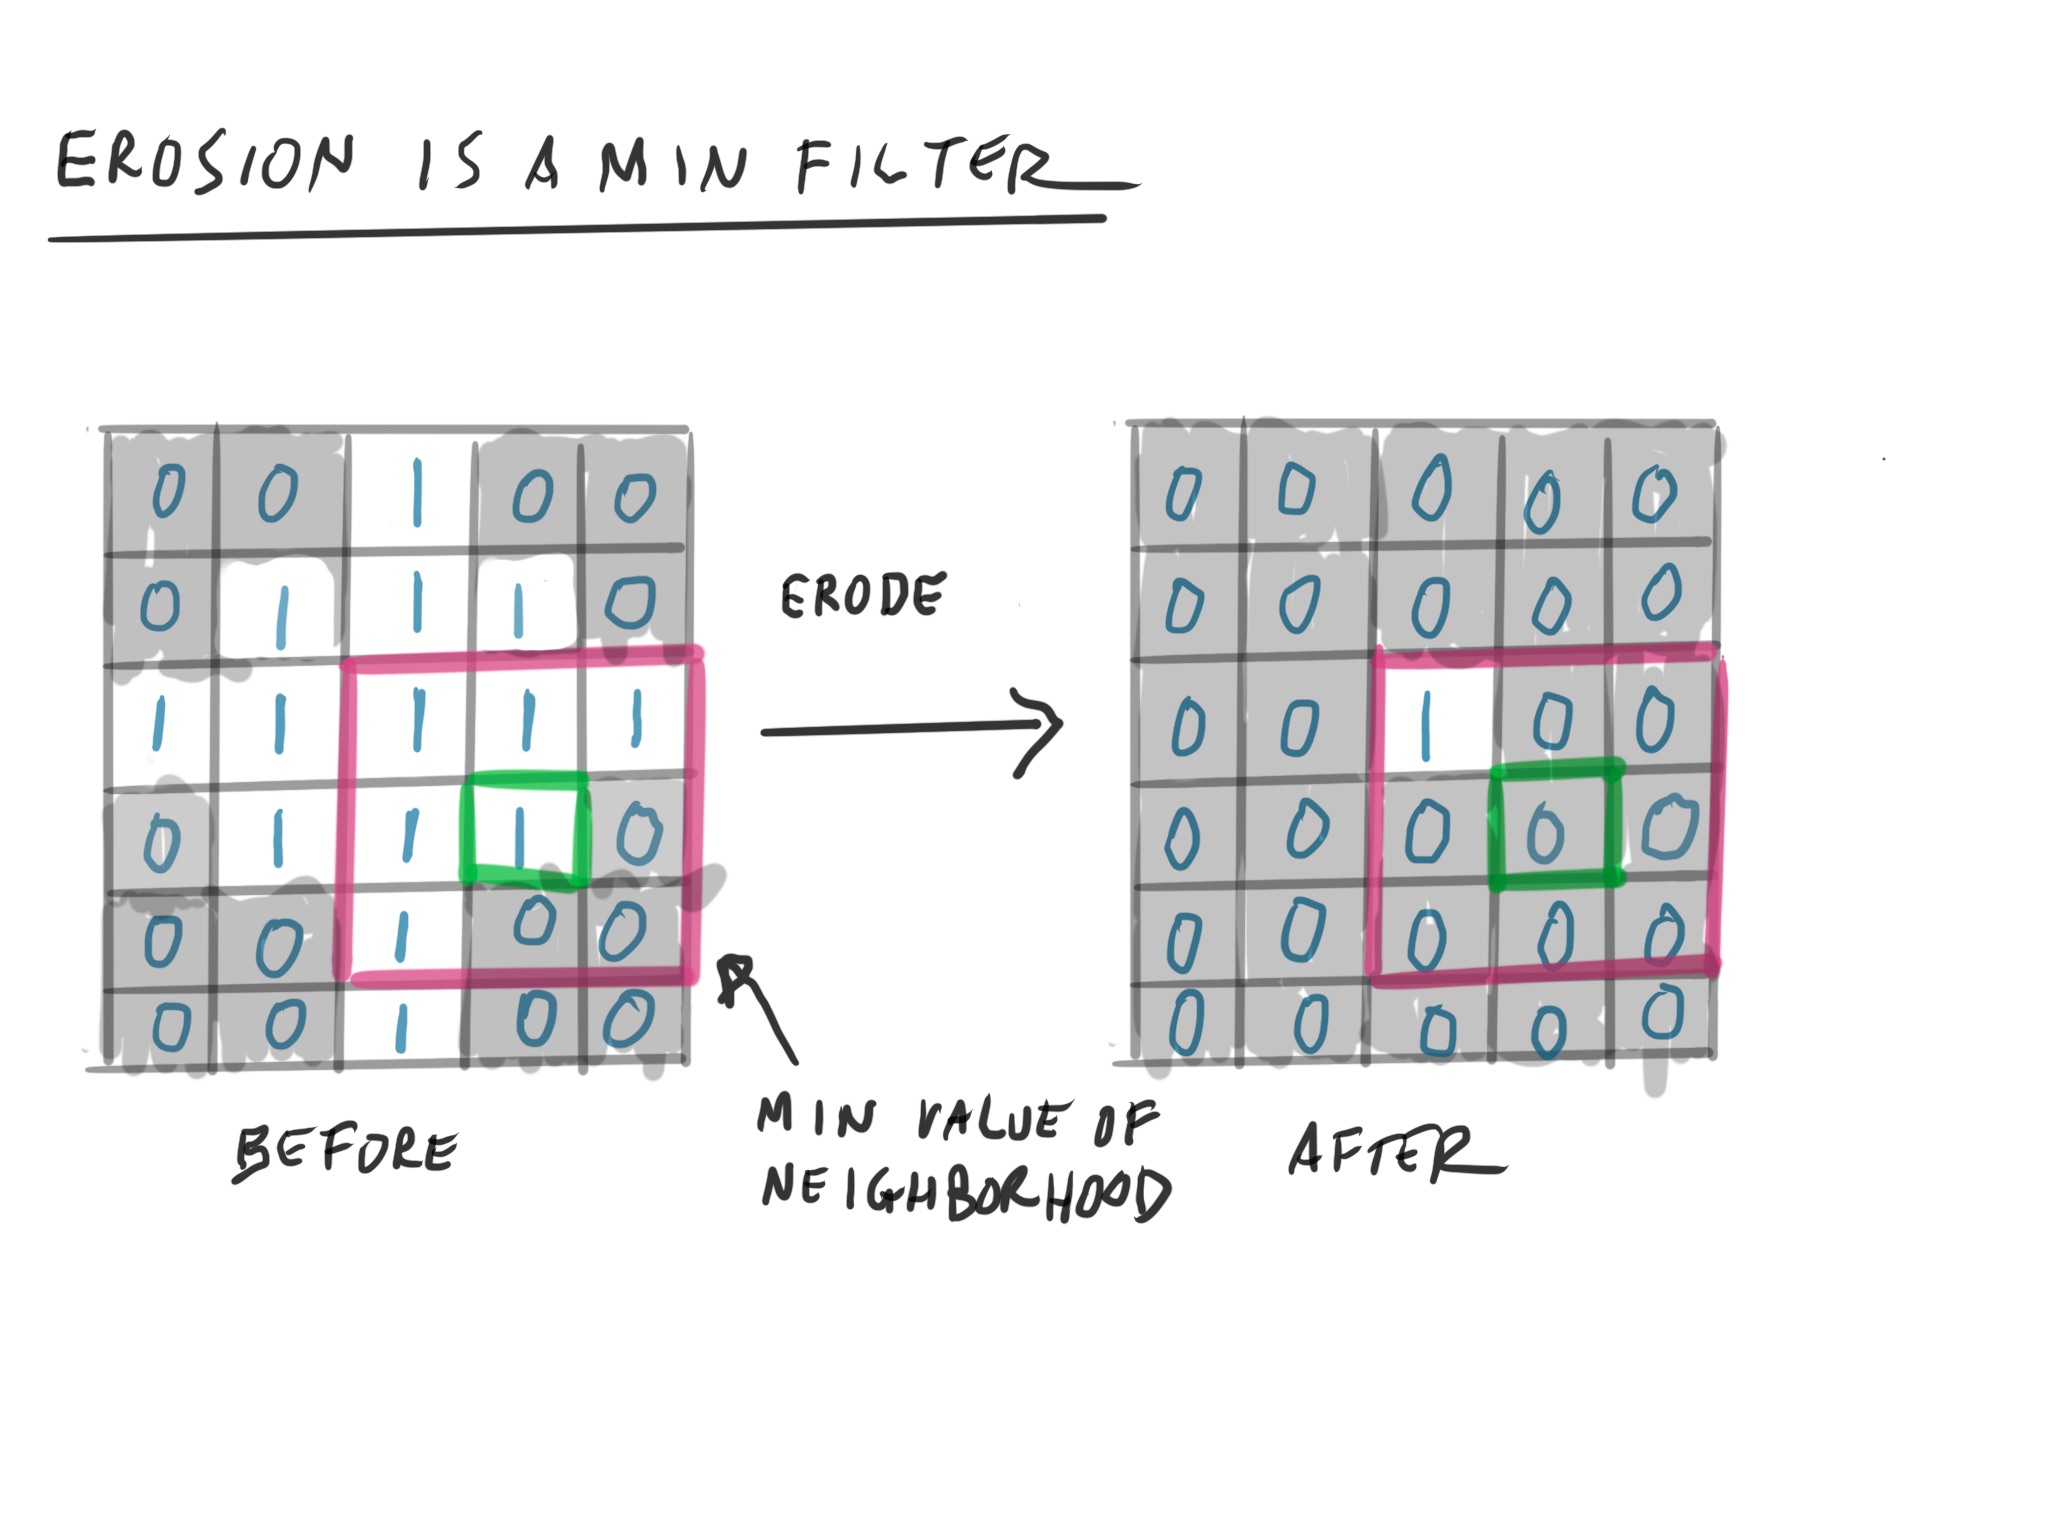 EROSION IS A MIN FILTER
0 0 1 0 0
0 1 1 1 0
1 1 1 1 1
0 1 1 1 0
0 0 1 0 0
0 0 1 0 0
BEFORE
ERODE
MIN VALUE OF
NEIGHBORHOOD
0 0 0 0 0
0 0 0 0 0
0 0 1 0 0
0 0 0 0 0
0 0 0 0 0
0 0 0 0 0
AFTER